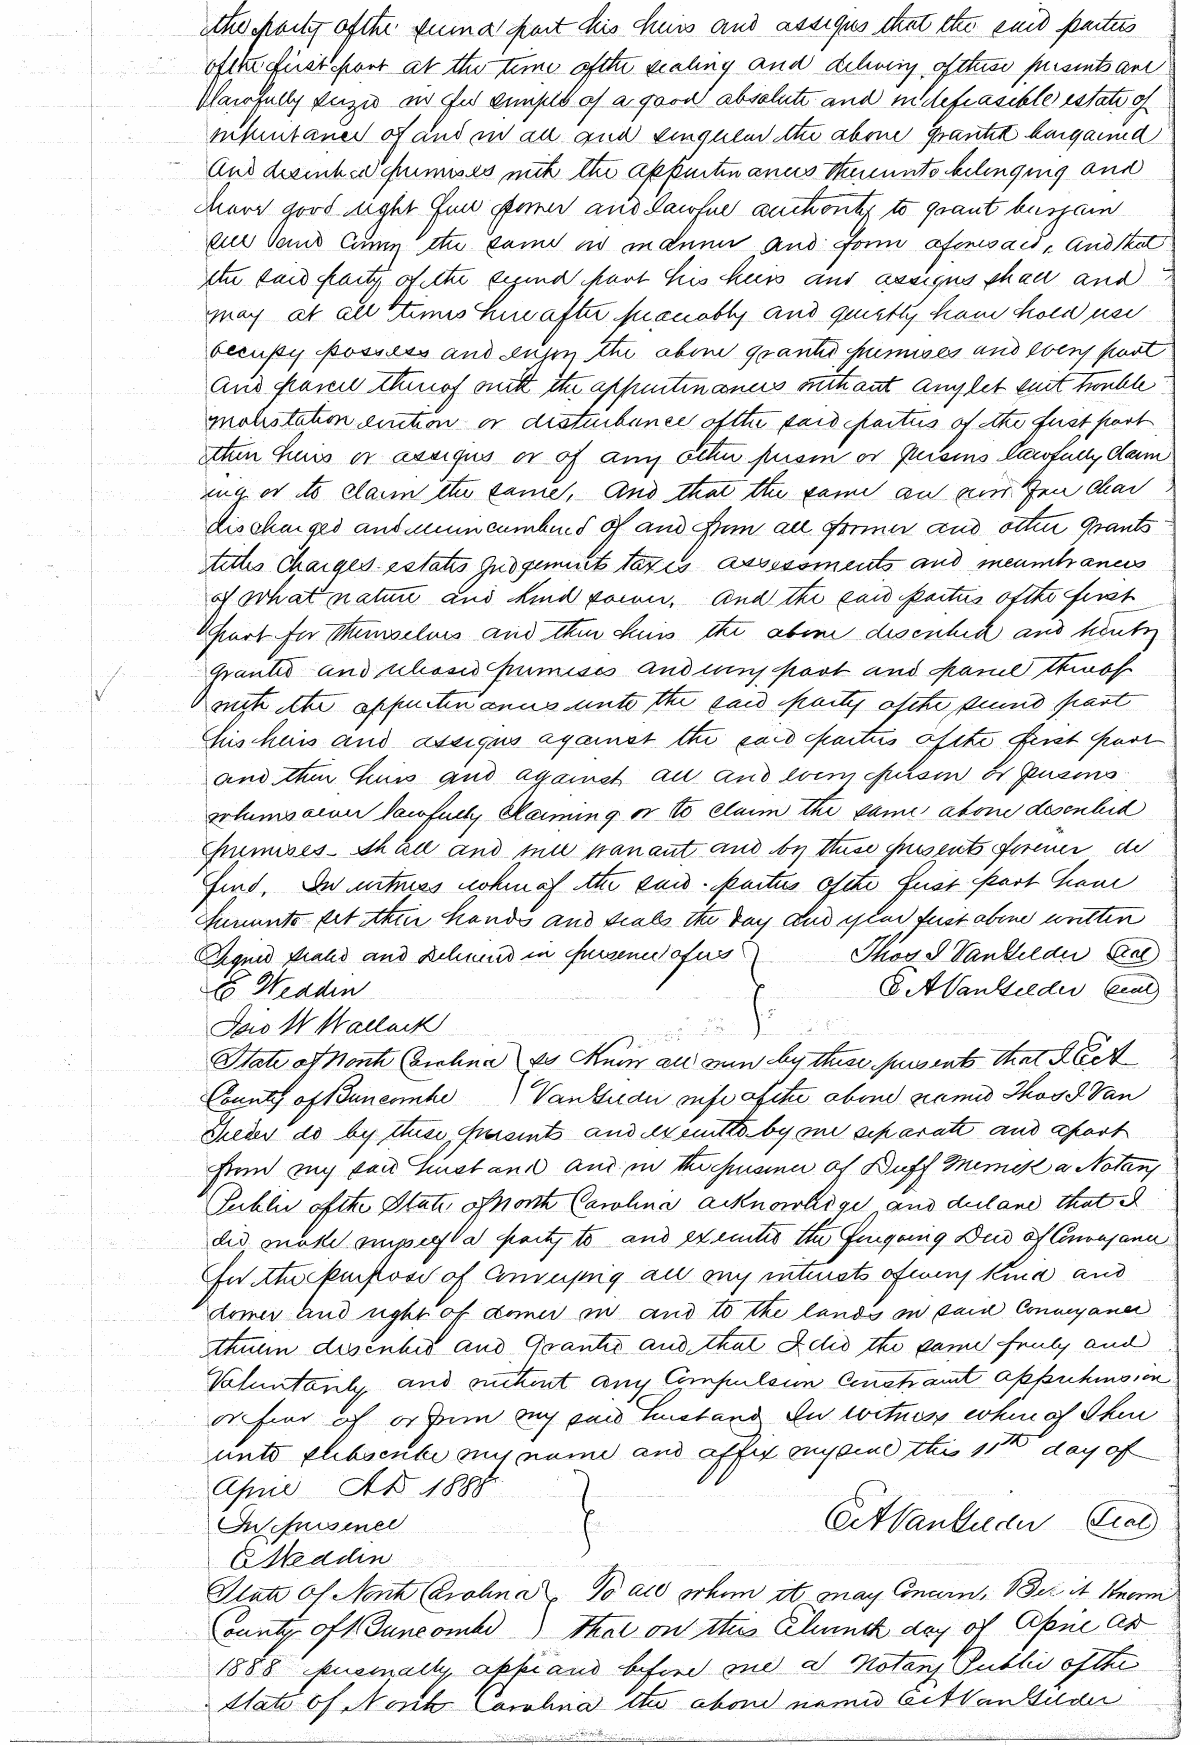 the party of the second part his heirs and assigns that the said parties
of the first part at the time of the sealing and delivery of these presents are
lawfully seized in fee simple of a good absolute and indefeasible estate of
inheritance of and in all and singular the above granted bargained
and described premises with the appurtinances thereunto belonging and
have good right full power and lawful authority to grant bargain
sell and convey the same in manner and form aforesaid, and that
the said party of the second part his heirs and assigns shall and
may at all times hereafter peaceably and quietly have hold use
occupy possess and enjoy the above granted premises and every part
and parcel thereof with the appurtinances without any let suit trouble
molestation eviction or disturbance of the said parties of the first part
their heirs or assigns or of any other person or persons lawfully claim
ing or to claim the same, and that the same are now free clear
discharged and unincumbered of and from all former and other grants
titles charges estates judgements taxes assessments and incumbrances
of what nature and kind soever, and the said parties of the first
part for themselves and their heirs the above described and hereby
granted and released premises and every part and parcel thereof
with the appurtinances unto the said party of the second part
his heirs and assigns against the said parties of the first part
and their heirs and against all and every person or persons
whomsoever lawfully claiming or to claim the same above described
premises shall and will warrant and by these presents forever de
fend. In witness whereof the said parties of the first part have
hereunto set their hands and seals the day and year first above written
Signed sealed and delivered in presence of us } Thos I VanGilder (seal)
E Weddin E A VanGilder (seal)
Jno W Wallack
State of North Carolina } ss Know all men by these presents that I E A
County of Buncombe } VanGilder wife of the above named Thos I Van
Gilder do by these presents and executed by me separate and apart
from my said husband and in the presence of Duff Merrick a Notary
Public of the State of North Carolina acknowledge and declare that I
did make myself a party to and executed the foregoing Deed of Conveyance
for the purpose of conveying all my interests of every kind and
dower and right of dower in and to the lands in said conveyance
therein described and granted and that I did the same freely and
voluntarily and without any compulsion constraint apprehension
or fear of or from my said husband In witness whereof I here
unto subscribe my name and affix my seal this 11th day of
April AD 1888
In presence } E A VanGilder (seal)
E Weddin
State of North Carolina } To all whom it may concern, Be it known
County of Buncombe } that on this Eleventh day of April AD
1888 personally appeared before me a Notary Public of the
State of North Carolina the above named E A VanGilder